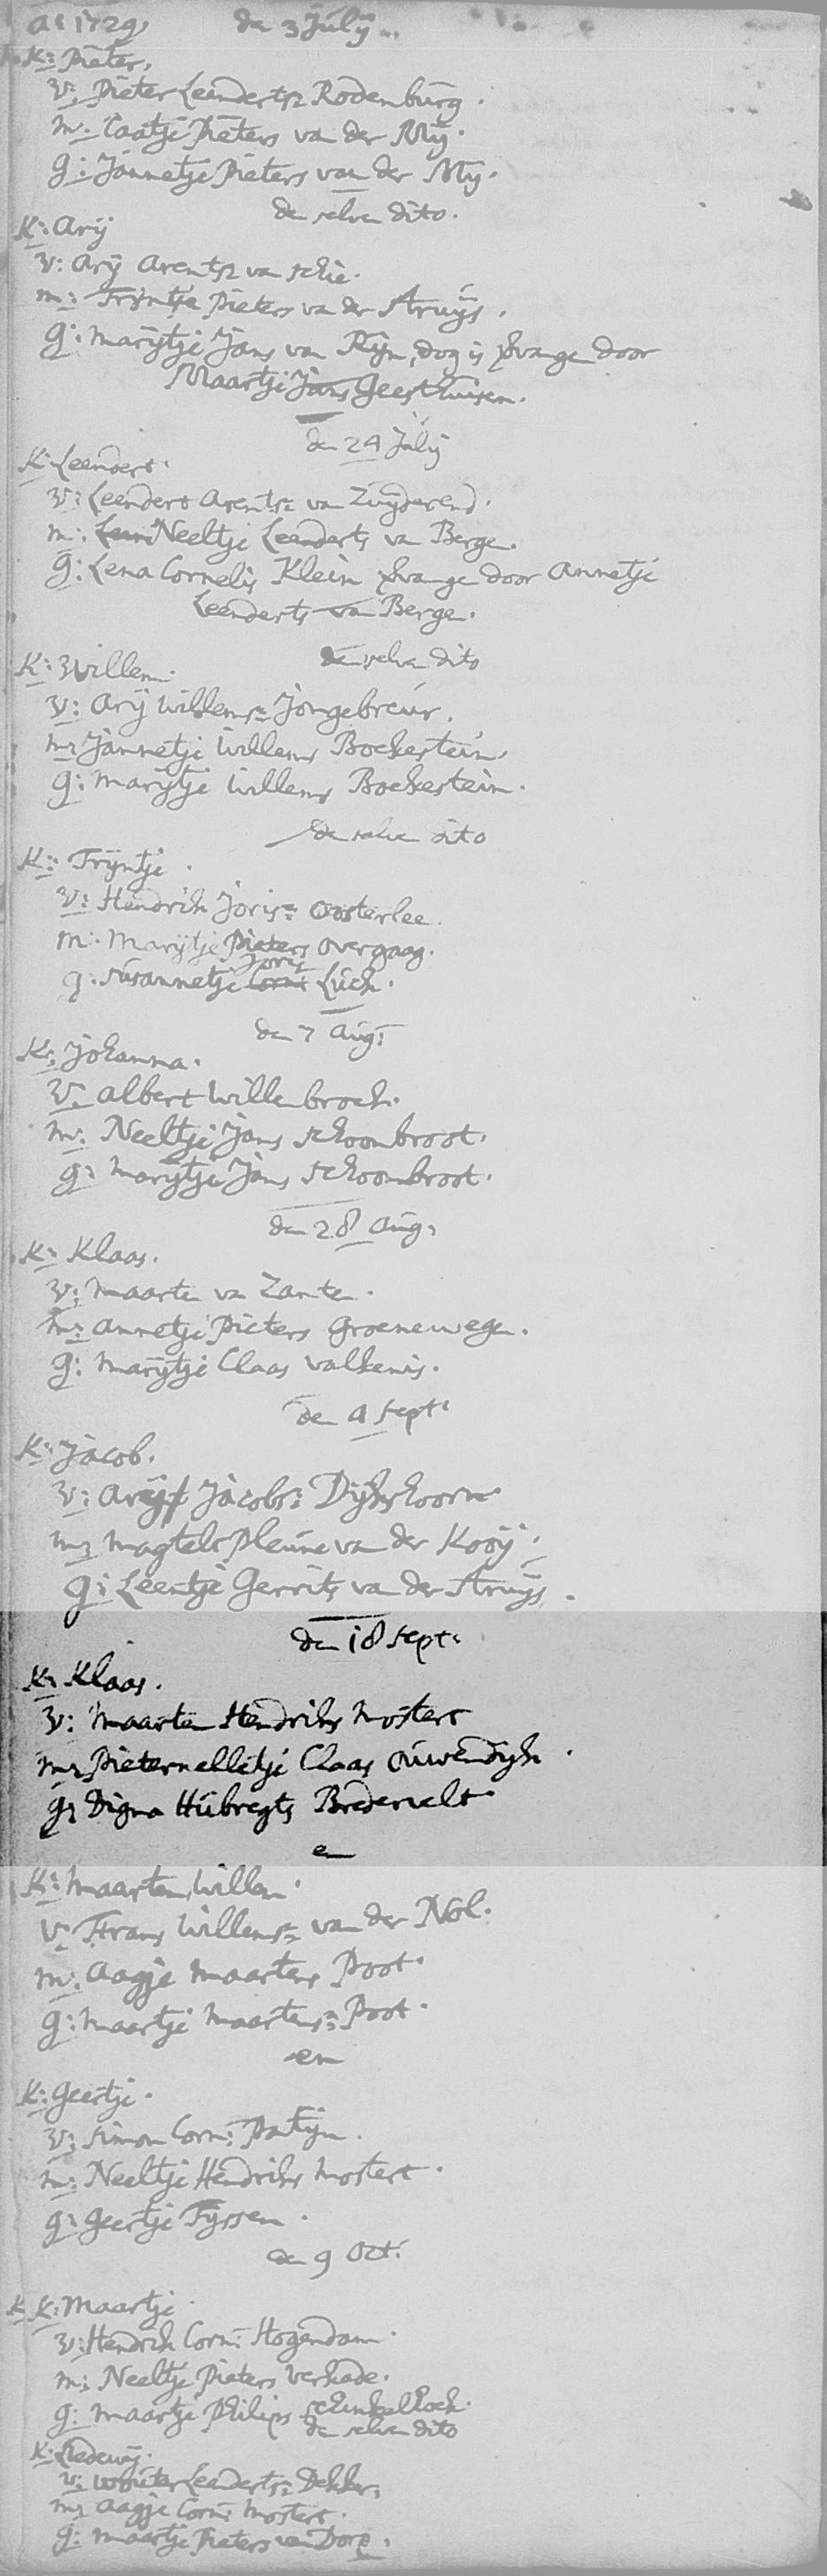 Aº 1729, den 3 Julij
K: Pieter,
V: Pieter Leenderts: Rodenburg.
m: Caatje Pieters van der Mij.
g: Jannetje Pieters van der Mij.
den selven dito.
K: Arij
V: Arij Arentsz van Schie.
m: Trijntje Pieters van der Struijs.
g: Marijtje Jans van Rijn, dog is vange door
Maartje Jans Geesthuisen.
den 24 Julij
K: Leendert.
V: Leendert Arents= van Zuijderend.
m: Neeltje Leenderts van Berge.
g: Lena Cornelis Klein vange door Annetje
Leenderts van Berge.
den selven dito
K: Willem.
V: Arij Willems= Jongebreur.
m: Jannetje Willems Boekestein,
g: Marijtje Willems Boekestein.
den selven dito
K: Trijntje.
V: Hendrik Joris= Oosterlee.
m: Marijtje Pieters Overgaag.
g: Susannetje Joris Luck.
den 7 Aug:
K: Johanna.
V: Albert Willenbroek.
m: Neeltje Jans Schoonbroot.
g: Marijtje Jans Schoonbroot.
den 28 Aug:
K: Klaas.
V: Maarten van Zanten.
m: Annetje Pieters Groenewegen.
g: Marijtje Claas Valkenis.
den 4 Sept:
K: Jacob.
V: Arij Jacobs: Dijkshoorn
m: Magtelt Pleune van der Kooij.
g: Leentje Gerrits van der Struijs.
den 18 Sept:
K: Klaas.
V: Maarten Hendriks Mostert
m: Pieternelletje Claas Ouwendijk.
g: Digna Hubregts Bredervelt
en
K: Maarten Willem.
V: Frans Willems= van der Nol.
m: Aagje Maartens Poot.
g: Maartje Maartens= Poot.
en
K: Geertje.
V: Simon Corn: Patijn.
m: Neeltje Hendriks Mostert.
g: Geertje Tijssen.
den 9 Oct:
K: Maartje
V: Hendrik Corn: Hogendam.
m: Neeltje Pieters Verkade.
g: Maartje Philips Schinkelhoek.
den selven dito
K: Liedewij.
V: Wouter Leenderts= Dekker.
m: Aagje Corn: Mostert.
g: Maartje Pieters van Dorp.